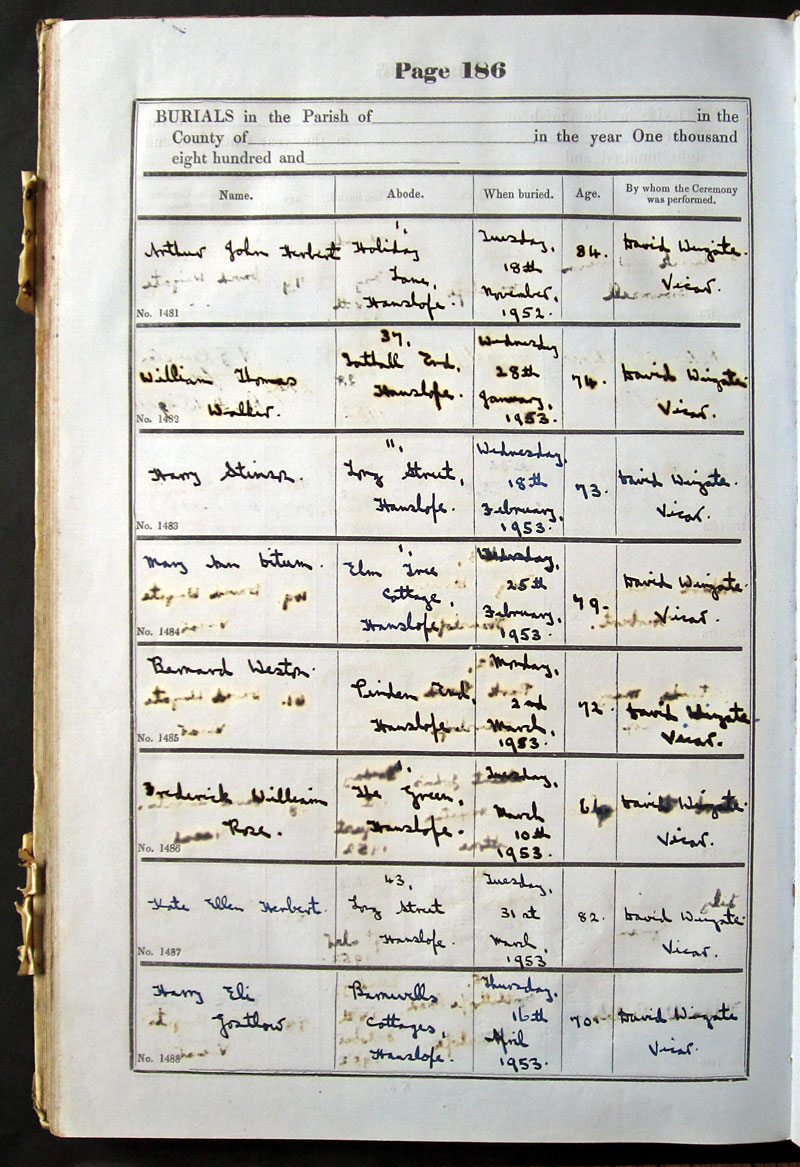 Page 186
BURIALS in the Parish of in the
County of in the year One thousand
eight hundred and
Name. Abode. When buried. Age. By whom the Ceremony was performed.
Arthur John Herbert
No. 1481
1,
Holiday
Lane,
Hanslope.
Tuesday,
18th
November,
1952.
84.
David Wingate.
Vicar.
William Thomas
Walker.
No. 1482
37,
Tathall End,
Hanslope.
Wednesday
28th
January,
1953.
74.
David Wingate.
Vicar.
Harry Stinson.
No. 1483
11,
Long Street,
Hanslope.
Wednesday,
18th
February,
1953.
73.
David Wingate.
Vicar.
Mary Ann
No. 1484
1,
Elm Tree
Cottage,
Hanslope
25th
February,
1953.
79.
David Wingate.
Vicar.
Bernard Weston.
No. 1485
End,
Hanslope
Monday,
2nd
March,
1953.
72.
David Wingate
Vicar.
Frederick William
Rose.
No. 1486
The Green,
Hanslope.
Tuesday,
March
10th
1953.
David Wingate.
Vicar.
Kate Ellen Herbert.
No. 1487
43,
Long Street
Hanslope.
Tuesday,
31st
March,
1953
82.
David Wingate.
Vicar.
Harry Eli
Gostlow
No. 1488
Barnwells
Cottages,
Hanslope.
Thursday,
16th
April
1953.
70.
David Wingate
Vicar.